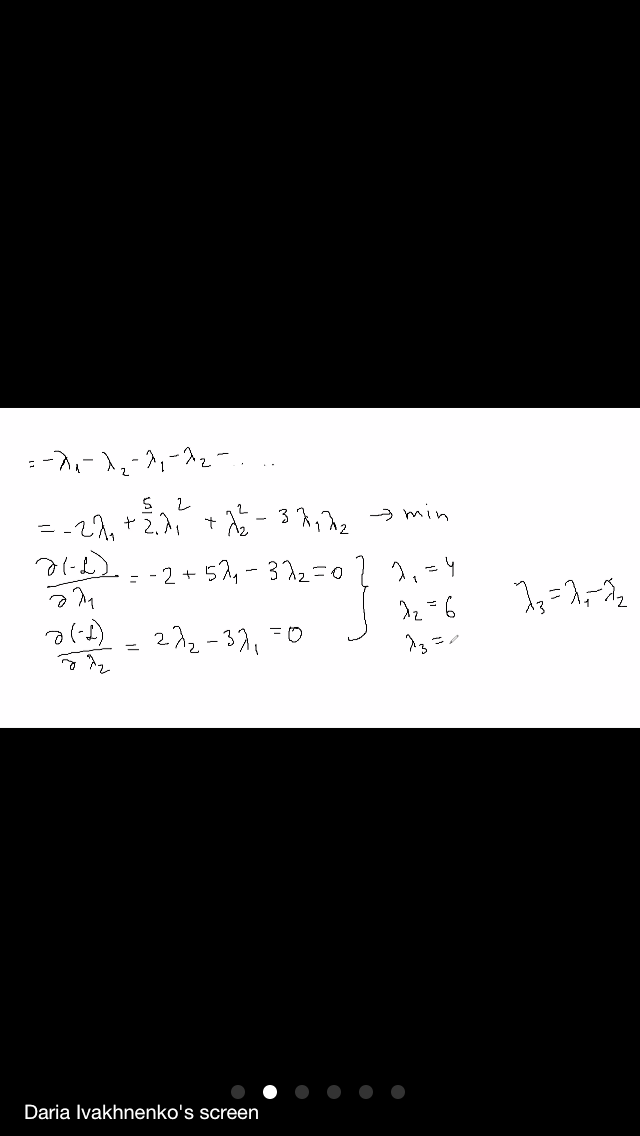 = -λ₁ - λ₂ - λ₁ - λ₂ - .. ..
= -2λ₁ + 5/2·λ₁² + λ₂² - 3λ₁λ₂ → min
∂(-L)/∂λ₁ = -2 + 5λ₁ - 3λ₂ = 0
∂(-L)/∂λ₂ = 2λ₂ - 3λ₁ = 0
}
λ₁ = 4
λ₂ = 6
λ₃ =
λ₃ = λ₁ - λ₂
Daria Ivakhnenko's screen